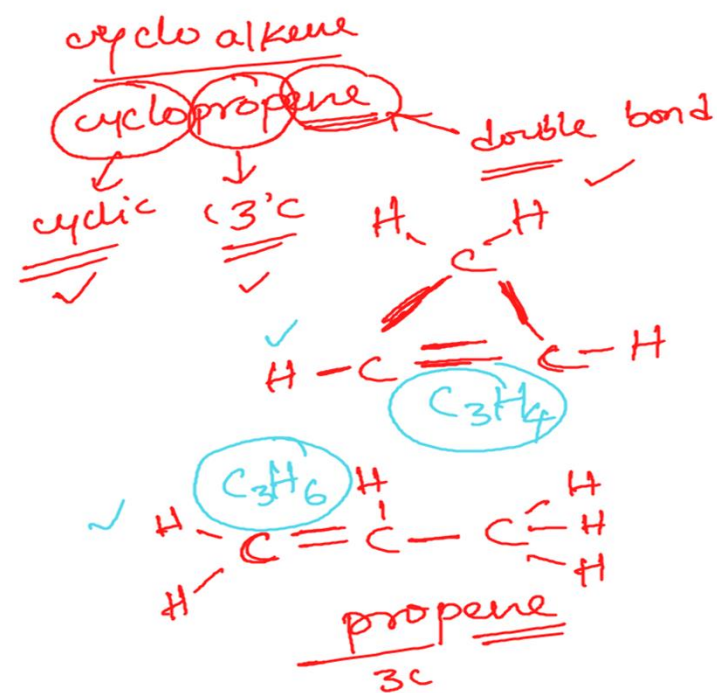 cyclo alkene
cyclopropene
double bond
cyclic
'3'C
H H
C
H - C = C - H
C3H4
C3H6
H
H
H
C = C - C - H
H
H
propene
3C